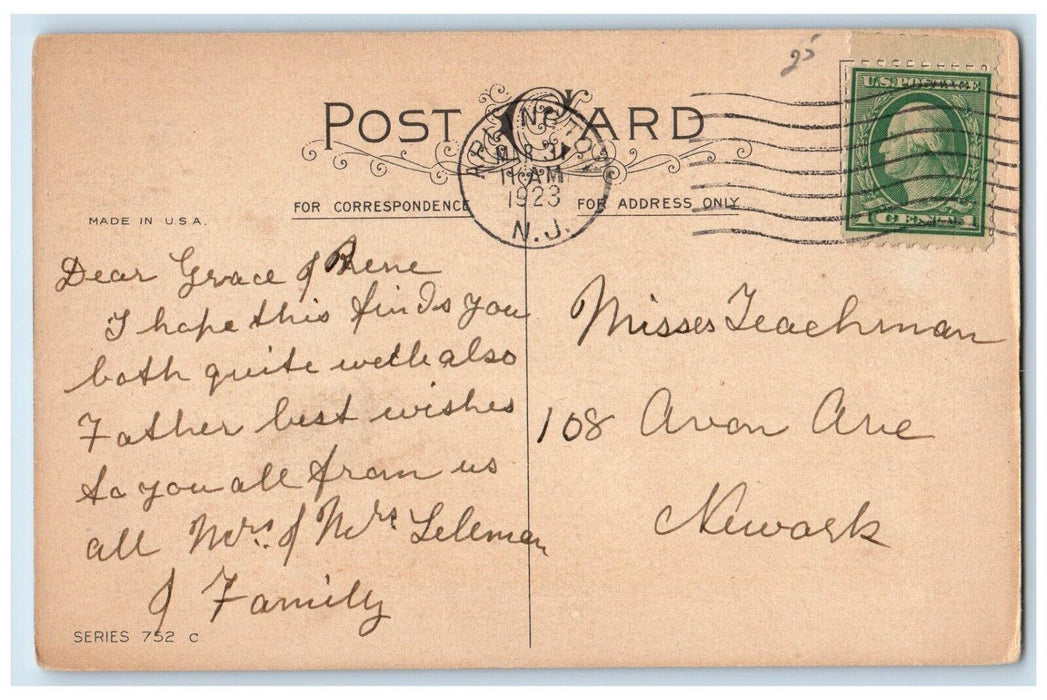 25
POST CARD
ARLINGTON
MAR 31
11 AM
1923
N.J.
U.S. POSTAGE
1 CENT 1
MADE IN U.S.A.
FOR CORRESPONDENCE
FOR ADDRESS ONLY
Dear Grace & Irene
I hope this finds you
both quite well also
Father best wishes
to you all from us
all Mr. & Mrs.
& Family
Misses Teachman
108 Avon Ave
Newark
SERIES 752 C